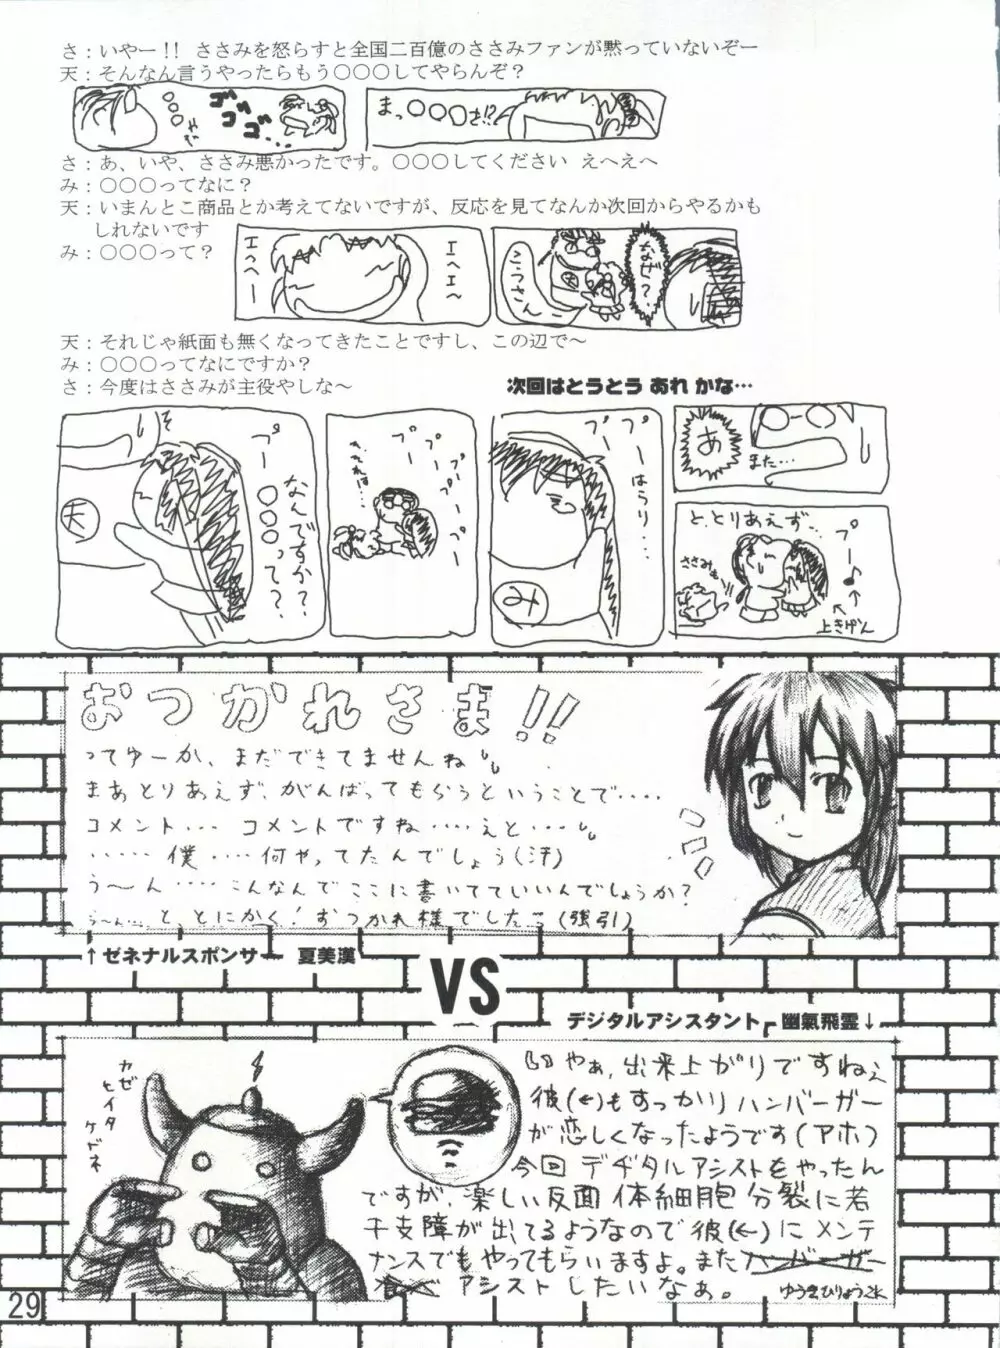 さ：いやー!! ささみを怒らすと全国二百億のささみファンが黙っていないぞー
天：そんなん言うやったらもう○○○してやらんぞ？
○○○
ゴゴゴ…
まっ○○○さ!?
さ：あ、いや、ささみ悪かったです。○○○してください えへえへ
み：○○○ってなに？
天：いまんとこ商品とか考えてないですが、反応を見てなんか次回からやるかも
しれないです
み：○○○って？
エヘヘー
エヘエヘ
なぜ？
天
天：それじゃ紙面も無くなってきたことですし、この辺で～
み：○○○ってなにですか？
さ：今度はささみが主役やしな～
次回はとうとう あれ かな…
プー
なんですか？
○○○って？
天
プー
プー
プープー
プー
プー
プーはうり…
み
あ
また…
と、とりあえず…
プー♪
ささみも!!
上きげん
おつかれさま!!
ってゆーか、まだできてませんね
まあとりあえず、がんばってもらうということで‥‥
コメント… コメントですね‥‥えと…
‥‥‥僕‥‥何やってたんでしょう(汗)
う～ん‥‥こんなんでここに書いてていいんでしょうか？
う～ん… と、とにかく！おつかれ様でした (強引)
↑ゼネナルスポンサー 夏美漢
VS
デジタルアシスタント 幽氣飛霊↓
カゼ
ヒイタ
ケドネ
やぁ、出来上がりですねぇ
彼(←)もすっかりハンバーガー
が恋しくなったようです(アホ)
今回デヂタルアシストをやったん
ですが、楽しい反面体細胞分裂に若
干支障が出てるようなので彼(←)にメンテ
ナンスでもやってもらいますよ。またハンバーガー
食べ アシストしたいなぁ。 ゆうきひりょうこK
29